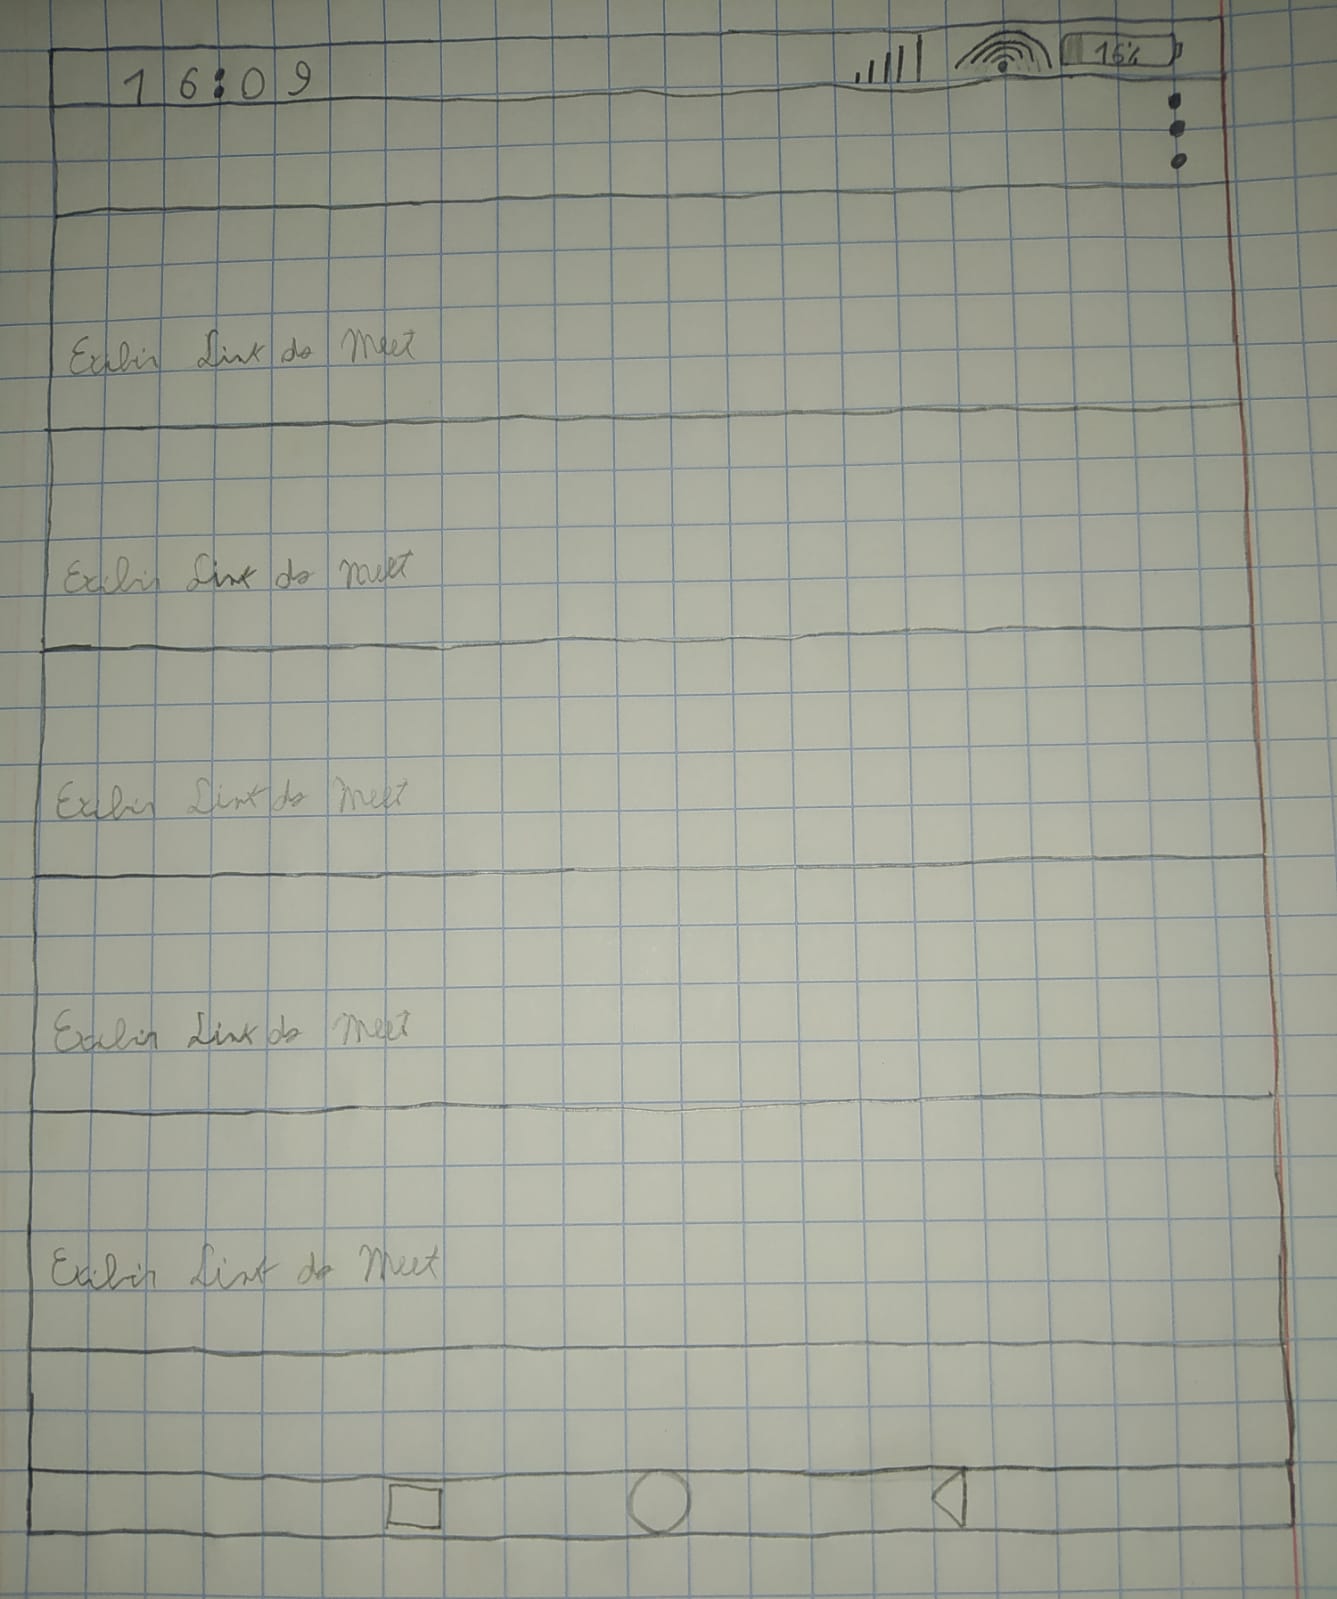 16:09 16%
Exibir Link do Meet
Exibir Link do Meet
Exibir Link do Meet
Exibir Link do Meet
Exibir Link do Meet